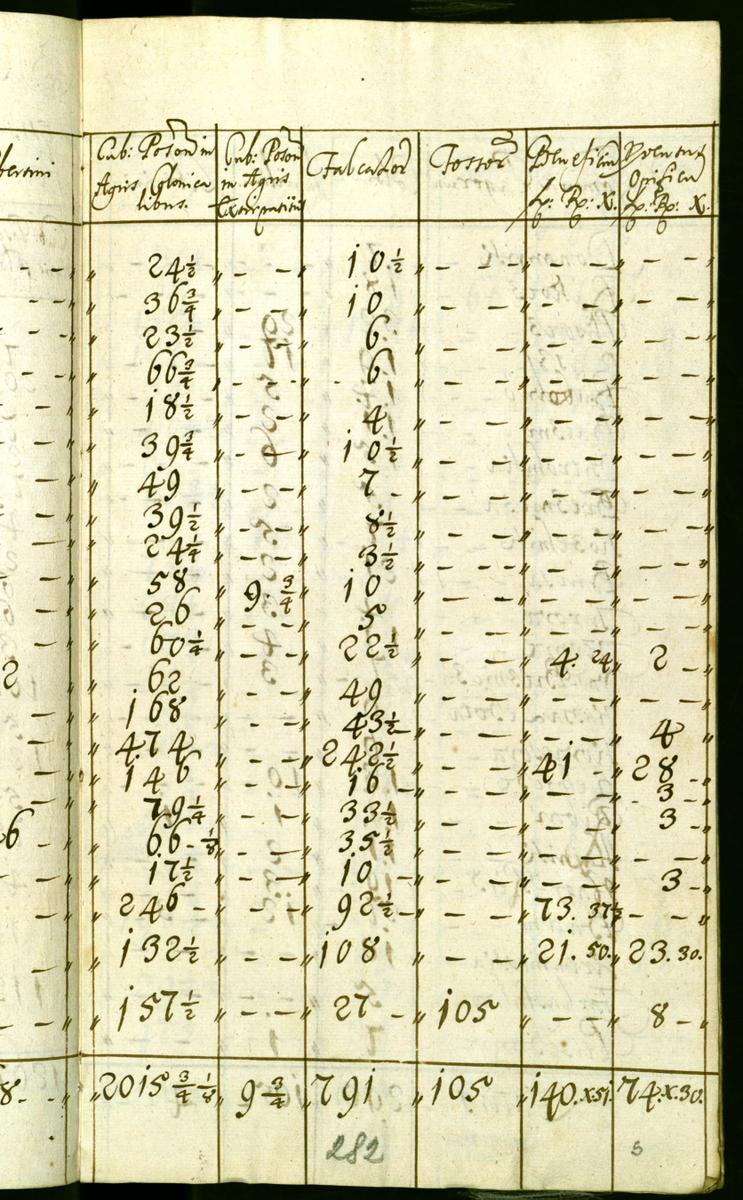 Cub: Poson in Agris Colonicalibus. Cub: Poson in Agris Extirpatitiis Falcator Fossor Benefiliu f: Rf: X. Proventus Opificu f: Rf: X.
„ 24½ „ – – „ 10½ „ – – – „ – – – „ – – – „
„ 36¾ „ – – „ 10 „ – – – „ – – – „ – – – „
„ 23½ „ – – „ 6 „ – – – „ – – – „ – – – „
„ 66¾ „ – – „ 6 „ – – – „ – – – „ – – – „
„ 18½ „ – – „ 4 „ – – – „ – – – „ – – – „
„ 39¾ „ – – „ 10½ „ – – – „ – – – „ – – – „
„ 49 „ – – „ 7 – „ – – – „ – – – „ – – – „
„ 39½ „ – – „ 8½ „ – – – „ – – – „ – – – „
„ 24¼ „ – – „ 3½ „ – – – „ – – – „ – – – „
„ 58 „ 9.¾ „ 10 „ – – – „ – – – „ – – – „
„ 26 „ – – „ 5 „ – – – „ – – – „ – – – „
„ 60¼ „ – – „ 22½ „ – – – „ 4. 24 „ 2 – „
2 „ 62 „ – – „ 49 „ – – – „ – – – „ – – – „
„ 168 „ – – „ 43½ „ – – – „ – – – „ 4 „
„ 474 „ – – „ 242½ „ – – – „ 41 – „ 28 – „
„ 146 „ – – „ 16 – „ – – – „ – – – „ 3 – „
„ 79¼ „ – – „ 33½ „ – – – „ – – – „ 3 „
6 „ 66-⅛ „ – – „ 35½ „ – – – „ – – – „ – – – „
„ 17½ „ – – „ 10 – „ – – – „ – – – „ 3 – „
„ 246 – „ – – „ 92½ – „ – – – „ 73. 37½ „ – – – „
„ 132½ „ – – „ 108 „ – – – „ 21. 50. „ 23. 30. „
„ 157½ „ – – – „ 27 – „ 105 „ – – – „ 8 – „
8 - - „ 2015 ¾ ⅛ „ 9¾ „ 791 „ 105 „ 140. x 51. 74. x. 30.
282